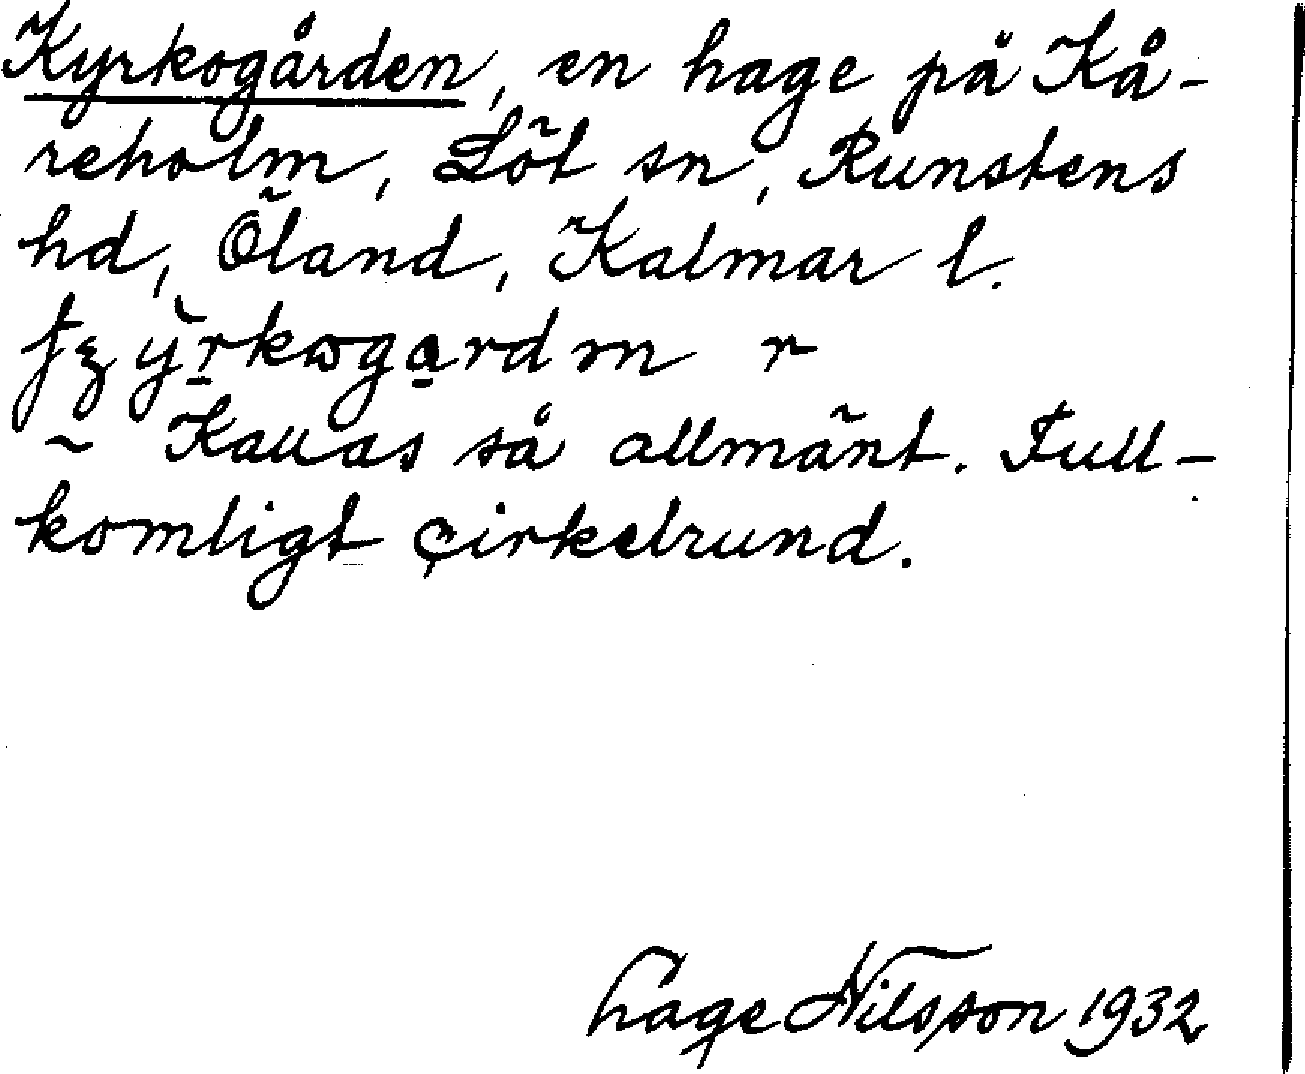 Kyrkogården, en hage på Kå-
reholm, Löt sn, Runstens
hd, Öland, Kalmar l.
r
~ Kallas så allmänt. Full-
komligt çirkelrund.
Lage Nilsson 1932